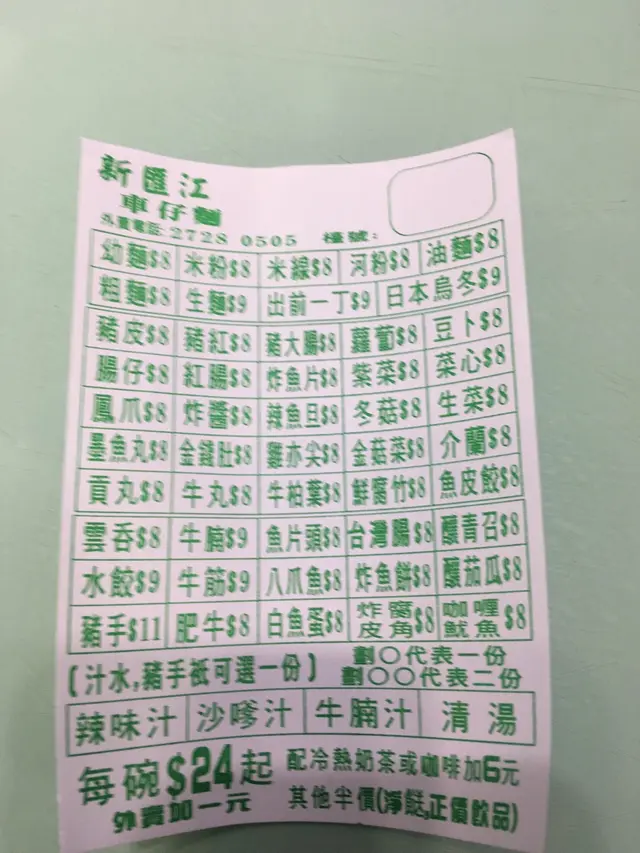 新匯江
車仔麵
外賣電話:2728 0505 檯號:
幼麵$8 米粉$8 米線$8 河粉$8 油麵$8
粗麵$8 生麵$9 出前一丁$9 日本烏冬$9
豬皮$8 豬紅$8 豬大腸$8 蘿蔔$8 豆卜$8
腸仔$8 紅腸$8 炸魚片$8 紫菜$8 菜心$8
鳳爪$8 炸醬$8 辣魚旦$8 冬菇$8 生菜$8
墨魚丸$8 金錢肚$8 雞亦尖$8 金菇菜$8 介蘭$8
貢丸$8 牛丸$8 牛柏葉$8 鮮腐竹$8 魚皮餃$8
雲吞$8 牛腩$9 魚片頭$8 台灣腸$8 釀青召$8
水餃$9 牛筋$9 八爪魚$8 炸魚餅$8 釀茄瓜$8
豬手$11 肥牛$8 白魚蛋$8 炸窩皮角$8 咖喱魷魚$8
(汁水,豬手祇可選一份) 劃〇代表一份
劃〇〇代表二份
辣味汁 沙嗲汁 牛腩汁 清湯
每碗$24起 配冷熱奶茶或咖啡加6元
外賣加一元 其他半價(淨餸,正價飲品)